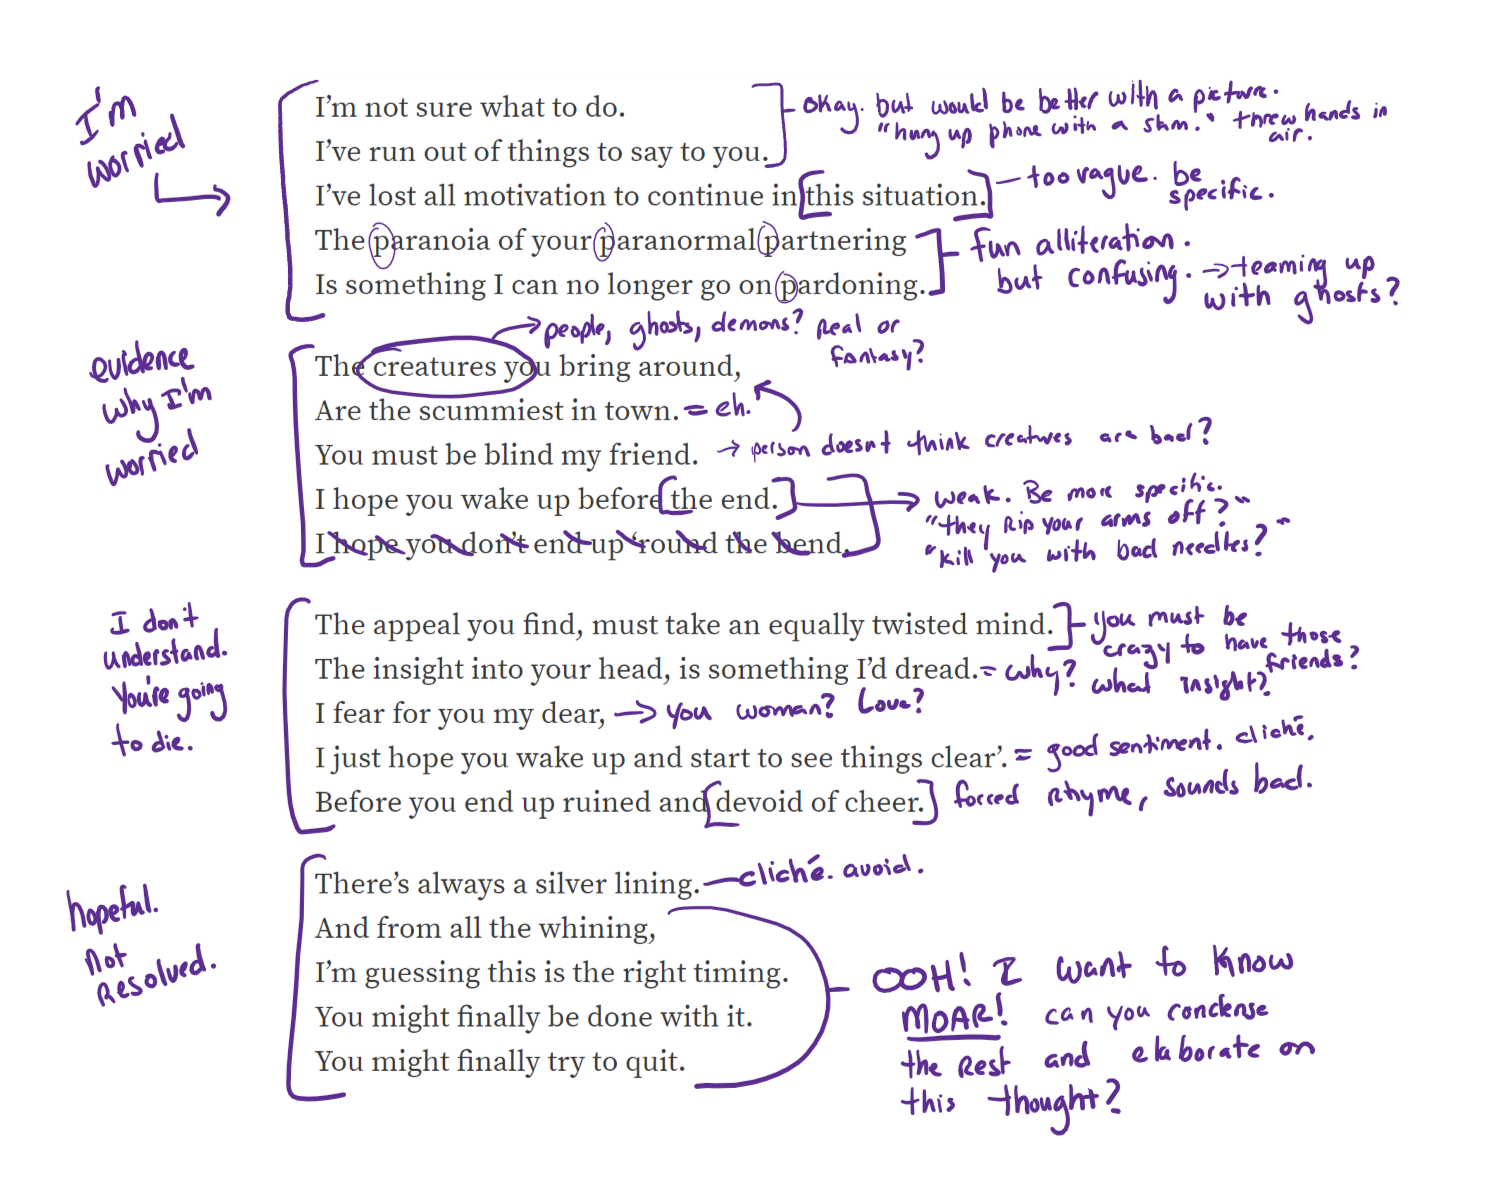 I'm
worried
I'm not sure what to do.
I've run out of things to say to you.
okay. but would be better with a picture.
"hung up phone with a slam." threw hands in
air.
I've lost all motivation to continue in this situation.
too vague. be
specific.
The paranoia of your paranormal partnering
Is something I can no longer go on pardoning.
fun alliteration.
but confusing. → teaming up
with ghosts?
evidence
why I'm
worried
people, ghosts, demons? Real or
fantasy?
The creatures you bring around,
Are the scummiest in town. = eh.
You must be blind my friend. → person doesn't think creatures are bad?
I hope you wake up before the end.
I hope you don't end up 'round the bend.
weak. Be more specific.
"they rip your arms off?"
"kill you with bad needles?"
I don't
understand.
You're going
to die.
The appeal you find, must take an equally twisted mind.
you must be
crazy to have those
friends?
The insight into your head, is something I'd dread. = why? what insight?
I fear for you my dear, → you woman? Love?
I just hope you wake up and start to see things clear'. = good sentiment. cliché.
Before you end up ruined and devoid of cheer. forced rhyme, sounds bad.
hopeful.
not
resolved.
There's always a silver lining. cliché. avoid.
And from all the whining,
I'm guessing this is the right timing.
You might finally be done with it.
You might finally try to quit.
OOH! I want to know
MOAR! can you condense
the rest and elaborate on
this thought?